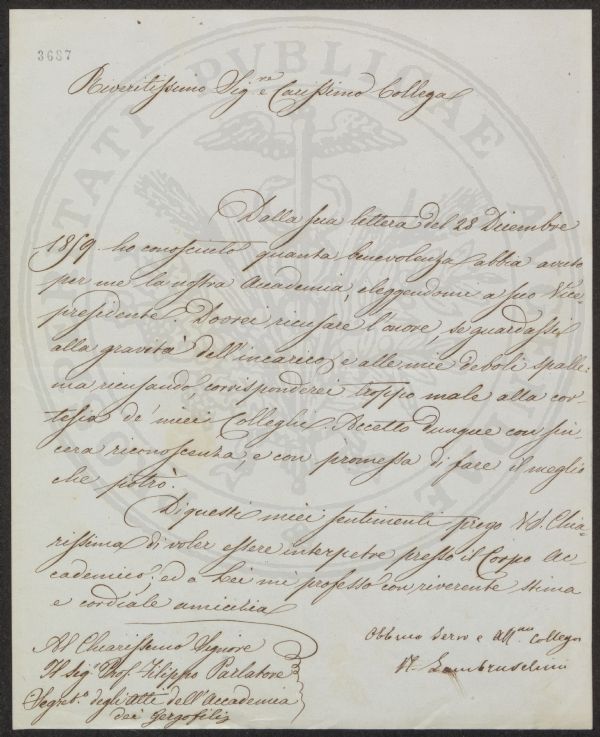 3687
Riveritissimo Sig.re e Carissimo Collega
Dalla sua lettera del 28 Dicembre
1859 ho conosciuto quanta benevolenza abbia avuto
per me la nostra Accademia, eleggendomi a suo Vice-
presidente. Dovrei ricusare l'onore, se guardassi
alla gravità dell'incarico, e alle mie deboli spalle:
ma ricusando, corrisponderei troppo male alla cor-
tesia de' miei Colleghi. Accetto dunque con sin-
cera riconoscenza, e con promessa di fare il meglio
che potrò.
Di questi miei sentimenti prego V. S. Chia-
rissima di voler essere interpetre presso il Corpo Ac-
cademico; ed a Lei mi professo con riverente stima
e cordiale amicizia
Obbmo Servo e Aff.mo Collega
R. Lambruschini
Al Chiarissimo Signore
Il Sig.r Prof. Filippo Parlatore
Segret.o degli Atti dell'Accademia
dei Gergofili
PROSPERITATI PUBLICAE AUGENDAE